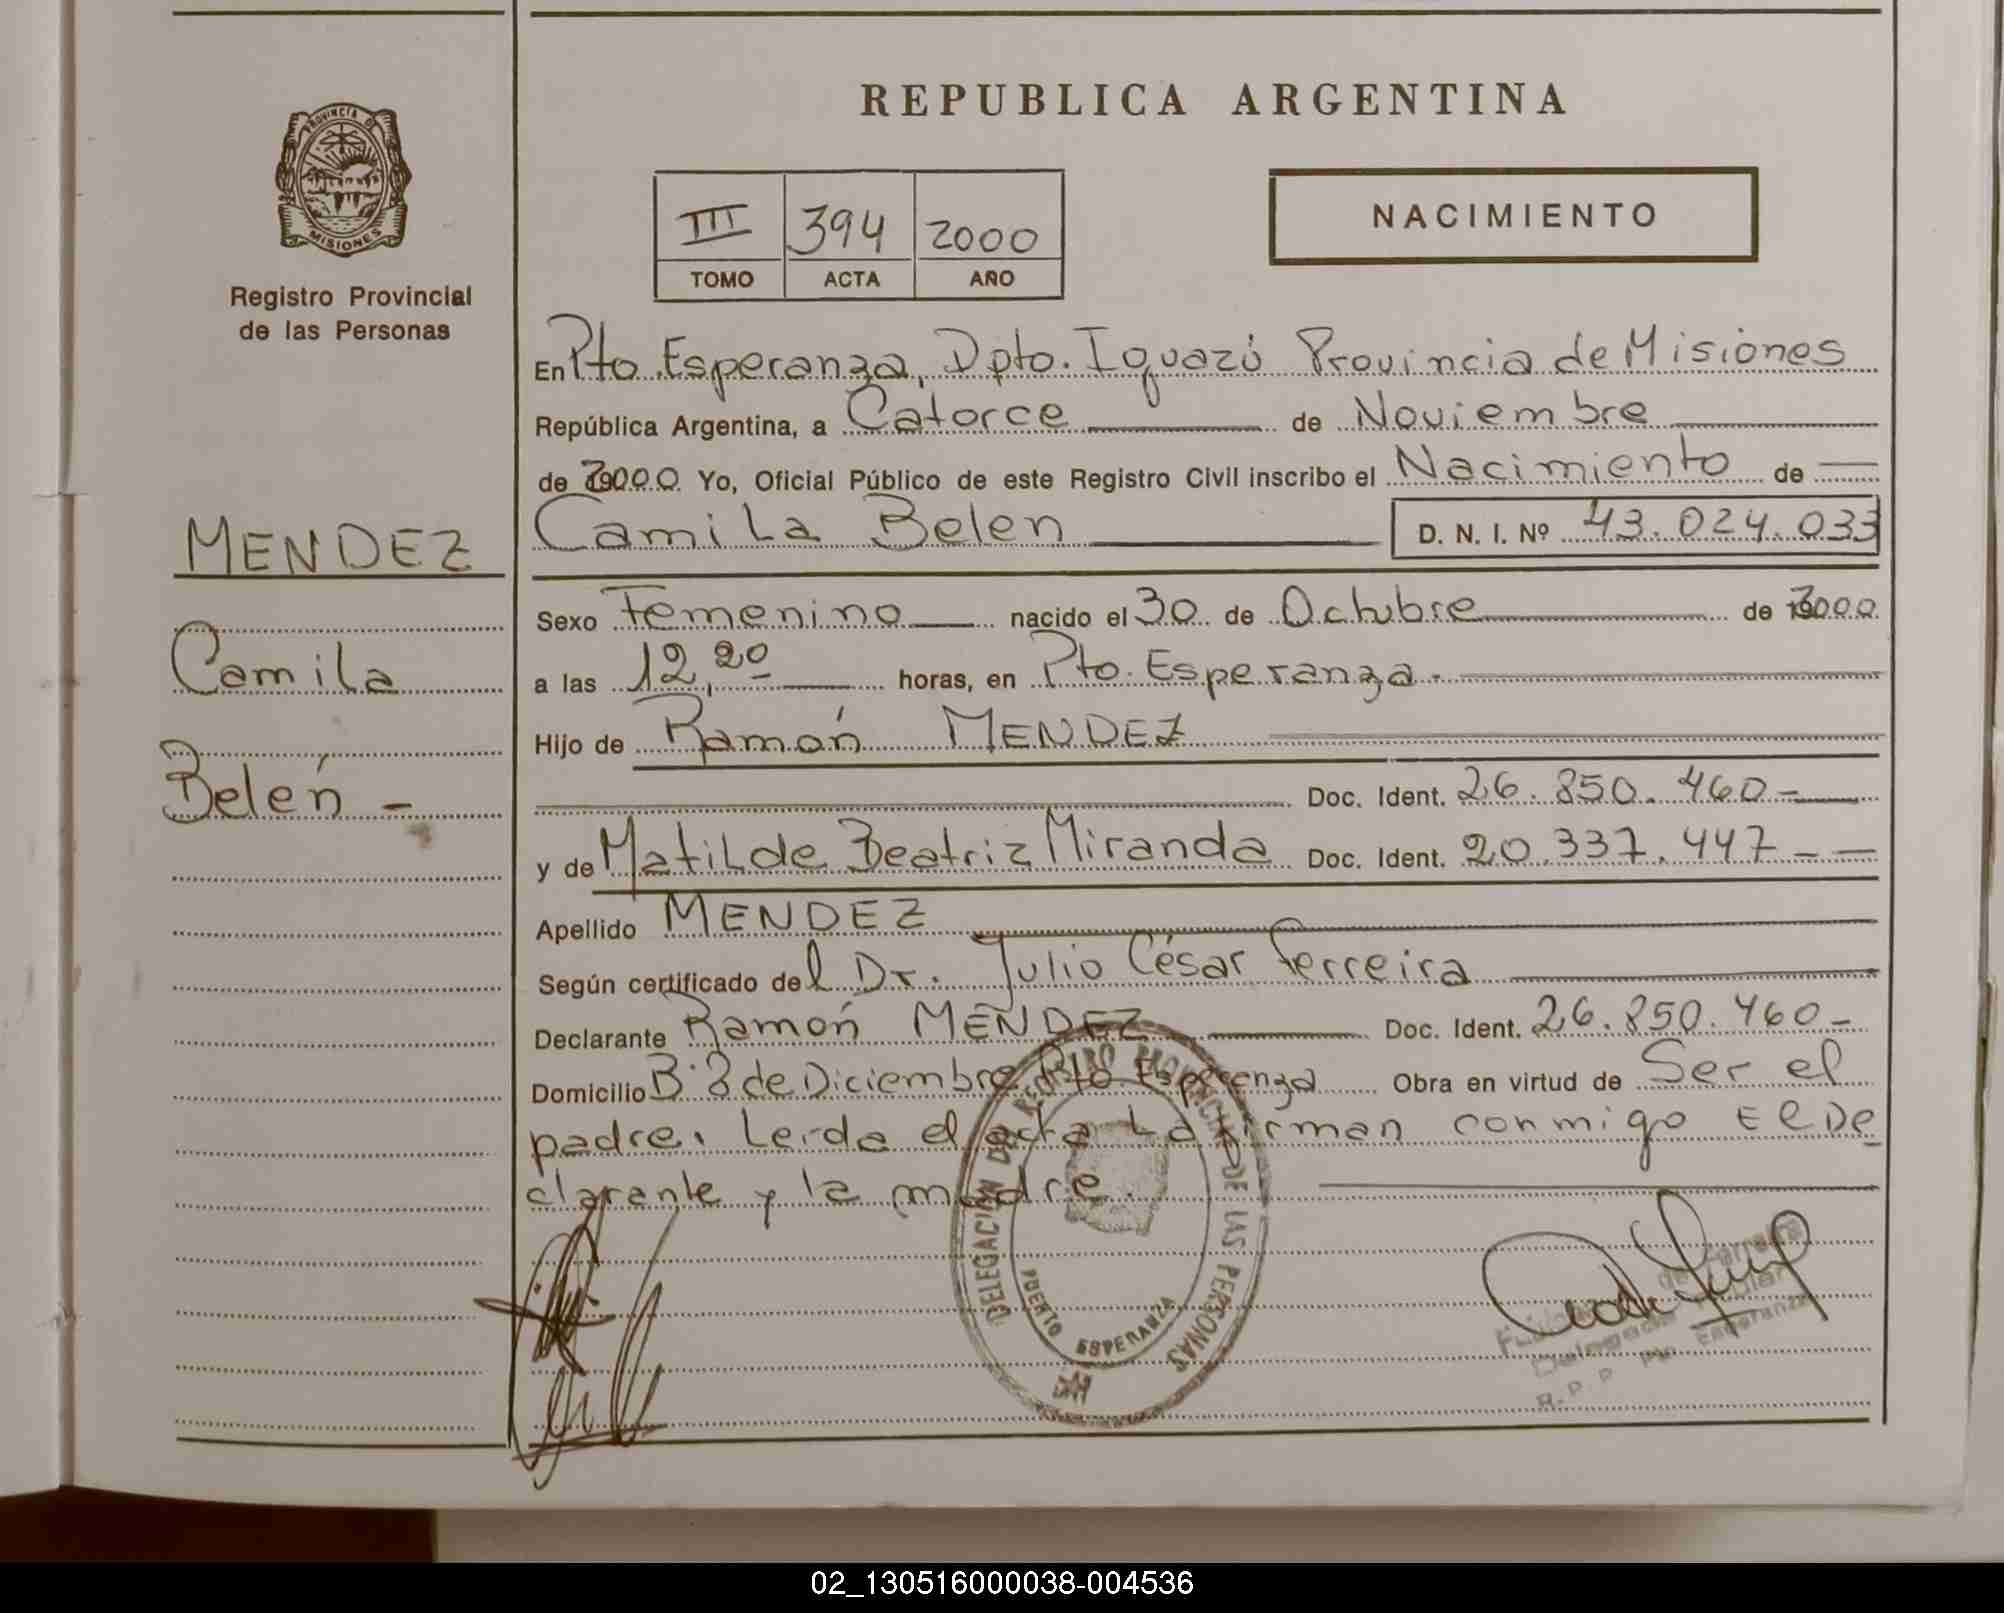 REPUBLICA ARGENTINA
PROVINCIA DE
MISIONES
Registro Provincial
de las Personas
MENDEZ
Camila
Belén -
III 394 2000
TOMO ACTA AÑO
NACIMIENTO
En Pto. Esperanza, Dpto. Iguazú Provincia de Misiones
República Argentina, a Catorce de Noviembre
de 2000 Yo, Oficial Público de este Registro Civil inscribo el Nacimiento de
Camila Belen D. N. I. Nº 43.024.033
Sexo Femenino nacido el 30 de Octubre de 2000
a las 12,20 horas, en Pto. Esperanza.
Hijo de Ramón MENDEZ
Doc. Ident. 26.850.460-
y de Matilde Beatriz Miranda Doc. Ident. 20.337.447--
Apellido MENDEZ
Según certificado del Dr. Julio César Ferreira
Declarante Ramón MENDEZ Doc. Ident. 26.850.460-
Domicilio Bº 8 de Diciembre Pto Esperanza Obra en virtud de Ser el
padre. Leída el acta La firman conmigo El De
clarante y la madre.
DELEGACION DEL REGISTRO PROVINCIAL DE LAS PERSONAS
PUERTO ESPERANZA
de Ferreira
Delegada Titular
R.P.P. Pto Esperanza
02_130516000038-004536